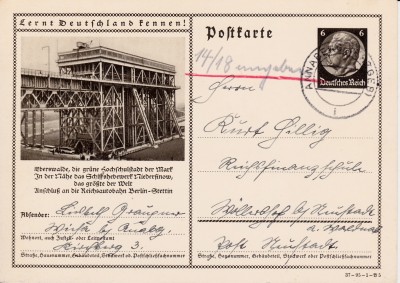 Lernt Deutschland kennen!
Postkarte
6 6
Deutsches Reich
ANNAB
14/18
Herrn
Kurt Hillig
Reichsfinanzschule
Wöllershof bei Neustadt
a. Waldnaab
Post Neustadt
Straße, Hausnummer, Gebäudeteil, Stockwerk oder Postschließfachnummer
Eberswalde, die grüne Hochschulstadt der Mark
In der Nähe das Schiffshebewerk Niederfinow,
das größte der Welt
Anschluß an die Reichsautobahn Berlin-Stettin
Absender: Liesbeth Graupner
Wiesa bei Annabg.
Wohnort, auch Zustell- oder Leitpostamt
3
Straße, Hausnummer, Gebäudeteil, Stockwerk oder Postschließfachnummer